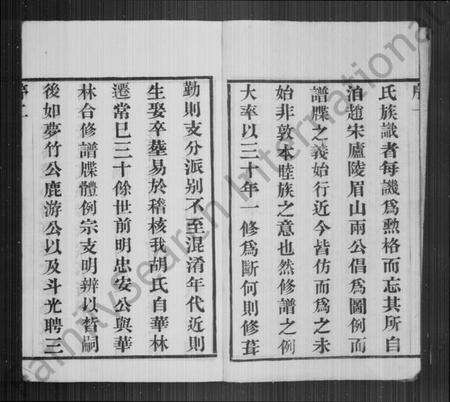 序
氏族識者每譏爲勲格而忘其所自
洎趙宋廬陵眉山兩公倡爲圖例而
譜牒之義始行近今皆仿而爲之未
始非敦本睦族之意也然修譜之例
大率以三十年一修爲斷何則修葺
勤則支分派別不至混淆年代近則
生娶卒塟易於稽核我胡氏自華林
遷常巳三十餘世前明忠安公與華
林合修譜牒體例宗支明辨以晳嗣
後如夢竹公鹿游公以及斗光聘三
序二
FamilySearch International